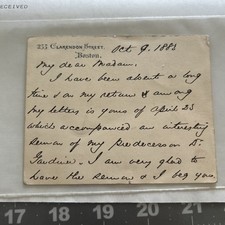 RECEIVED
233 Clarendon Street.
Boston.
Oct 9. 1883
My dear Madam.
I have been absent a long
time & on my return I among
my letters is yours of April 23
which accompanied an interesting
Sermon of my Predecessor Dr.
Gardiner. I am very glad to
have the Sermon & I beg you
17 18 19 20 21